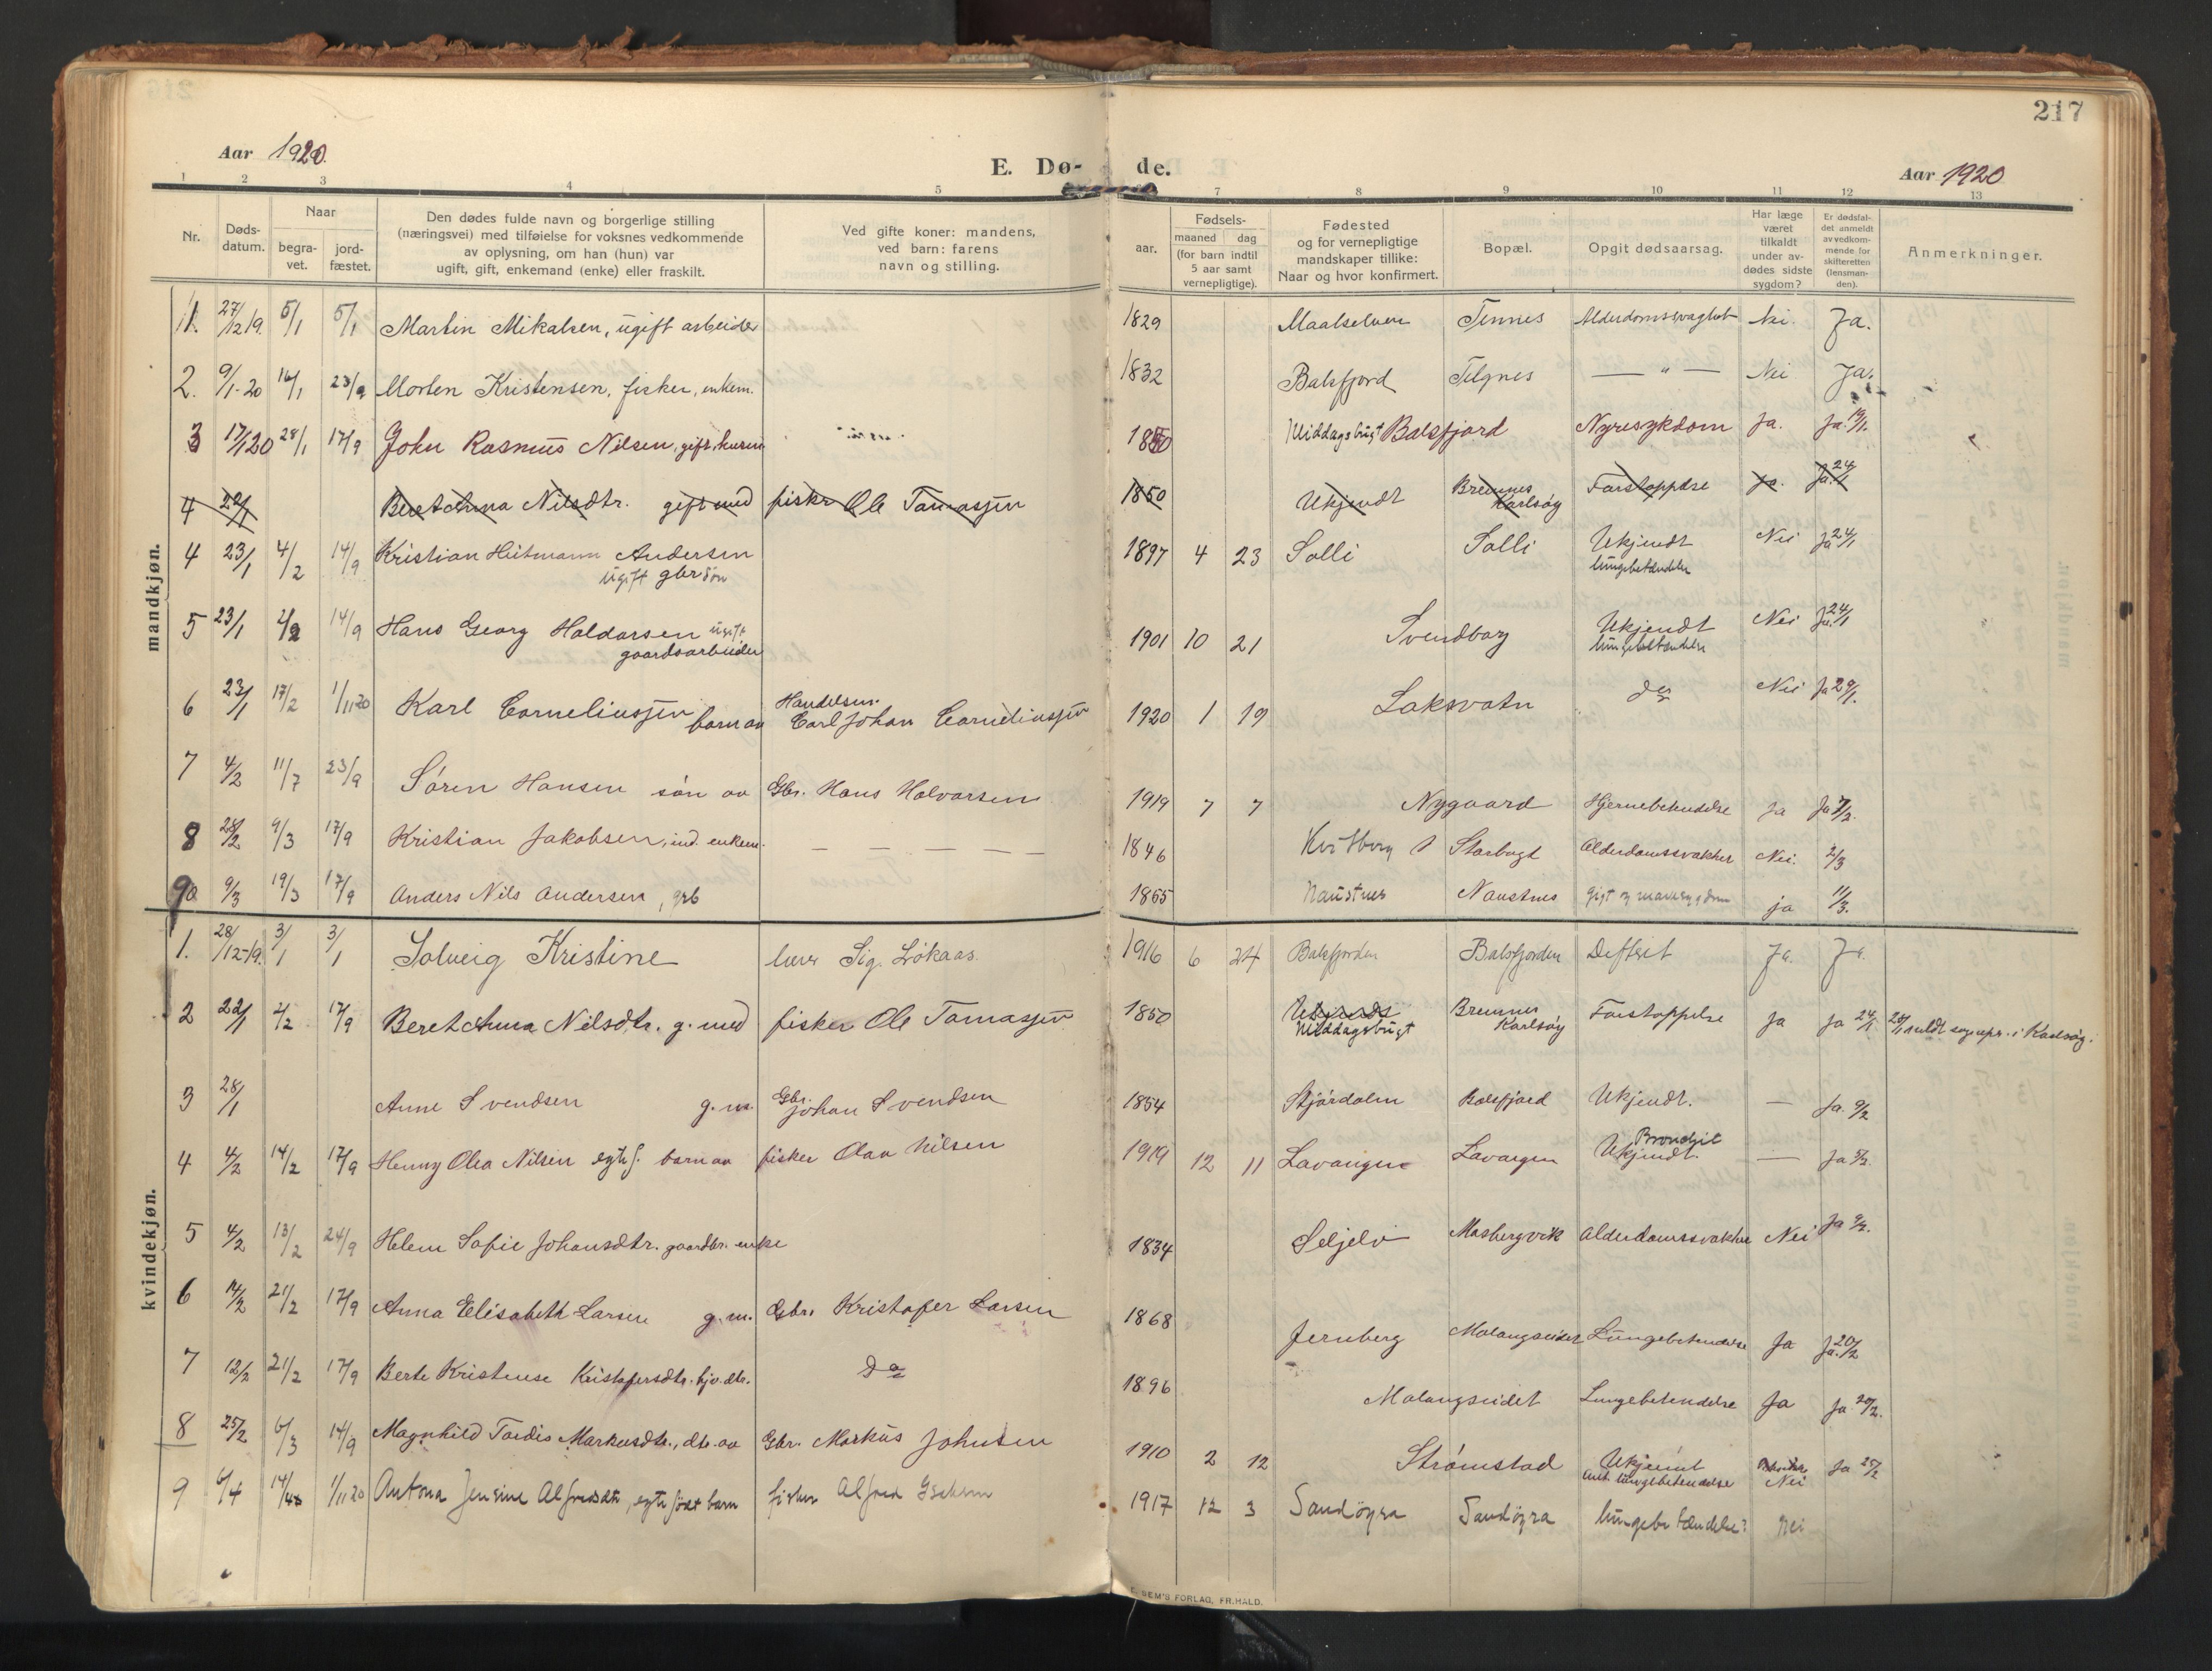 217
Aar 1920.
E. Dø- de.
Aar 1920
1 2 3 4 5 7 8 9 10 11 12 13
Nr. Døds-datum. Naar begra-vet. jord-fæstet. Den dødes fulde navn og borgerlige stilling (næringsvei) med tilføielse for voksnes vedkommende av oplysning, om han (hun) var ugift, gift, enkemand (enke) eller fraskilt. Ved gifte koner: mandens, ved barn: farens navn og stilling. aar. Fødsels- maaned dag (for barn indtil 5 aar samt vernepligtige). Fødested og for vernepligtige mandskaper tillike: Naar og hvor konfirmert. Bopæl. Opgit dødsaarsag. Har læge været tilkaldt under av-dødes sidste sygdom? Er dødsfal-det anmeldt av vedkom-mende for skifteretten (lensman-den). Anmerkninger.
mandkjøn.
1. 27/12 19. 5/1 5/1 Martin Mikalsen, ugift arbeider 1829 Maalselven Tennes Alderdomssvaghet Nei. Ja.
2. 9/1-20 16/1 23/9 Morten Kristensen, fisker, enkem. 1832 Balsfjord Tilgnes — " — Nei Ja.
3 17/1 20 28/1 17/9 John Rasmus Nilsen, gift, 1850 Middagsbugt Balsfjord Nyresykdom Ja. Ja. 19/1.
4 22/1 Beret Anna Nilsdtr. gift med fisker Ole Tomassen 1850 Ukjendt Bremnes Karlsøy Forstoppelse Ja. Ja. 24/1
4 23/1 4/2 14/9 Kristian Heitmann Andersen 1897 4 23 Solli Solli Ukjendt Nei Ja 24/1
ugift gbr søn lungebetændelse
5 23/1 4/2 14/9 Hans Georg Haldorsen ugift 1901 10 21 Svendborg Ukjendt Nei Ja. 24/1
gaardsarbeider lungebetændelse
6 23/1 17/2 1/11 20 Karl Corneliussen barn av Handelsm. Carl Johan Corneliussen 1920 1 19 Laksvatn do Nei Ja 29/1.
7 4/2 11/7 23/9 Sören Hansen sön av Gbr. Hans Halvorsen 1919 7 7 Nygaard Hjernebetendelse Ja Ja 7/2.
8 28/2 9/3 17/9 Kristian Jakobsen, ind. enkem. — — — — — 1846 Kvitberg Storbugt Alderdomssvakhet Nei. 2/3
9 9/3 19/3 17/9 Anders Nils Andersen, grb 1865 Naustnes Naustnes gigt og mavesygdom ja 11/3.
kvindekjøn.
1. 28/12-19. 3/1 3/1 Solveig Kristine lærer Sig. Lökaas. 1916 6 24 Balsfjorden Balsfjorden Defterit Ja. Ja.
2 22/1 4/2 17/9 Beret Anna Nilsdtr. g. med fisker Ole Tomassen 1850 Ukjendt Middagsbugt Bremnes Karlsöy Forstoppelse Ja Ja 24/1 meldt sognepr. i Karlsöy.
3 28/1 Anne Svendsen g. m. Gbr. Johan Svendsen 1854 Stjördalen Balsfjord Ukjendt. — Ja. 9/2
4 4/2 14/2 17/9 Henny Olea Nilsen egtef. barn av fisker Olav Nilsen 1919 12 11 Lavangen Lavangen Ukjendt. Bronchit — Ja
5 4/2 13/2 24/9 Helene Sofie Johansdtr. gaardbr. enke 1834 Seljelv Mosbergvik Alderdomssvakhet Nei Ja 9/2.
6 14/2 21/2 17/9 Anna Elisabeth Larsen g. m. Gbr. Kristofer Larsen 1868 Jernberg Malangseidet Lungebetendelse Ja Ja. 20/2
7 12/2 21/2 17/9 Berte Kristense Kristofersdtr. hjv. dtr. do 1896 Malangseidet Lungebetendelse Ja Ja. 20/2.
8 25/2 6/3 14/9 Magnhild Tordis Markusdtr., dtr. av Gbr. Markus Johnsen 1910 2 12 Strömstad Ukjent Nei Ja 25/2
ant. lungebetendelse
9 6/4 14/4 1/11 20 Antona Jensine Alfredsdtr, egte födt barn fisker Alfred 1917 12 3 Sandöyra Sandöyra lungebetændelse? nei
E. SEM'S FORLAG, FR.HALD.